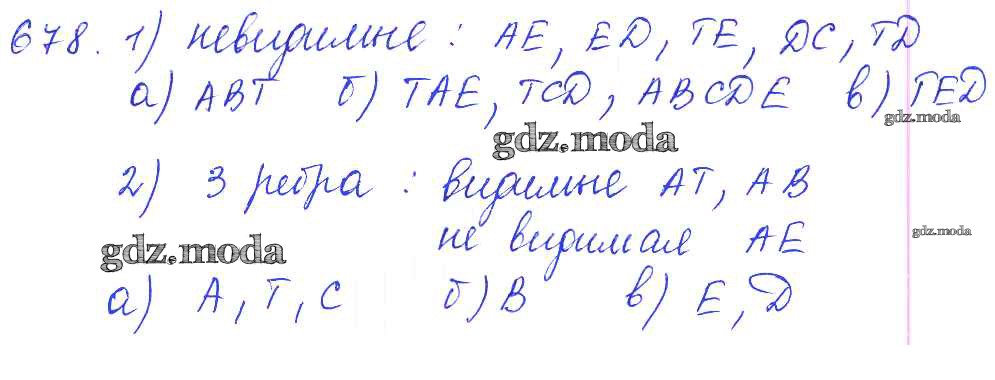 678. 1) невидимые : AE, ED, TE, DC, TD
а) ABT б) TAE, TCD, ABCDE в) TED
gdz.moda
gdz.moda
2) 3 ребра : видимые AT, AB
не видимая AE
gdz.moda
gdz.moda
а) A, T, C б) B в) E, D